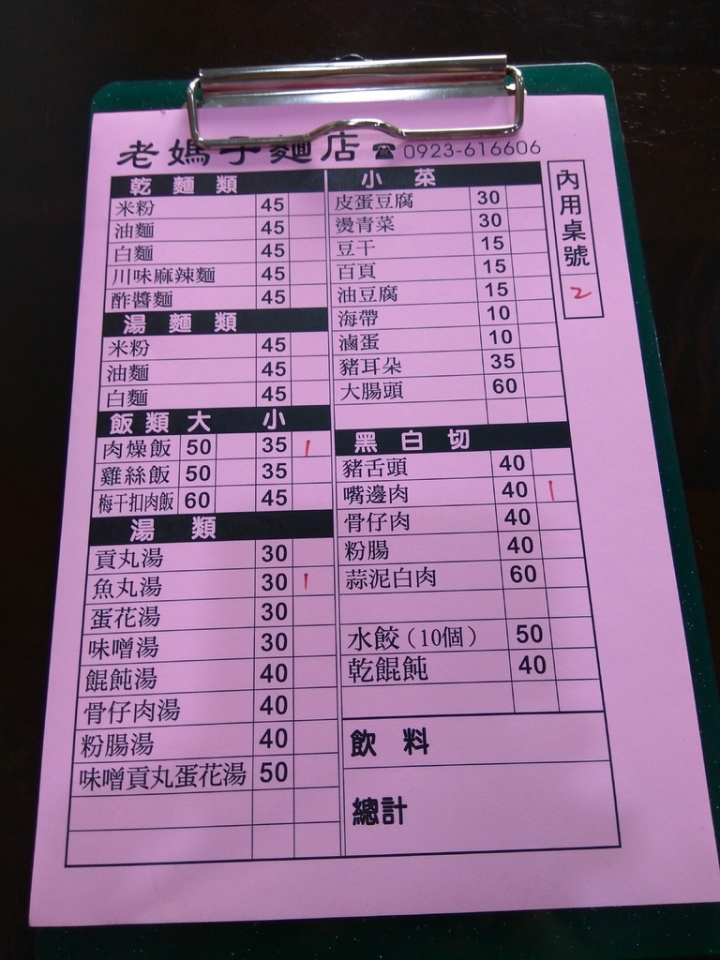 老媽子麵店 ☎ 0923-616606
內用桌號
2
乾麵類
米粉 45
油麵 45
白麵 45
川味麻辣麵 45
酢醬麵 45
湯麵類
米粉 45
油麵 45
白麵 45
飯類 大 小
肉燥飯 50 35 1
雞絲飯 50 35
梅干扣肉飯 60 45
湯類
貢丸湯 30
魚丸湯 30 1
蛋花湯 30
味噌湯 30
餛飩湯 40
骨仔肉湯 40
粉腸湯 40
味噌貢丸蛋花湯 50
小菜
皮蛋豆腐 30
燙青菜 30
豆干 15
百頁 15
油豆腐 15
海帶 10
滷蛋 10
豬耳朵 35
大腸頭 60
黑白切
豬舌頭 40
嘴邊肉 40 1
骨仔肉 40
粉腸 40
蒜泥白肉 60
水餃(10個) 50
乾餛飩 40
飲料
總計